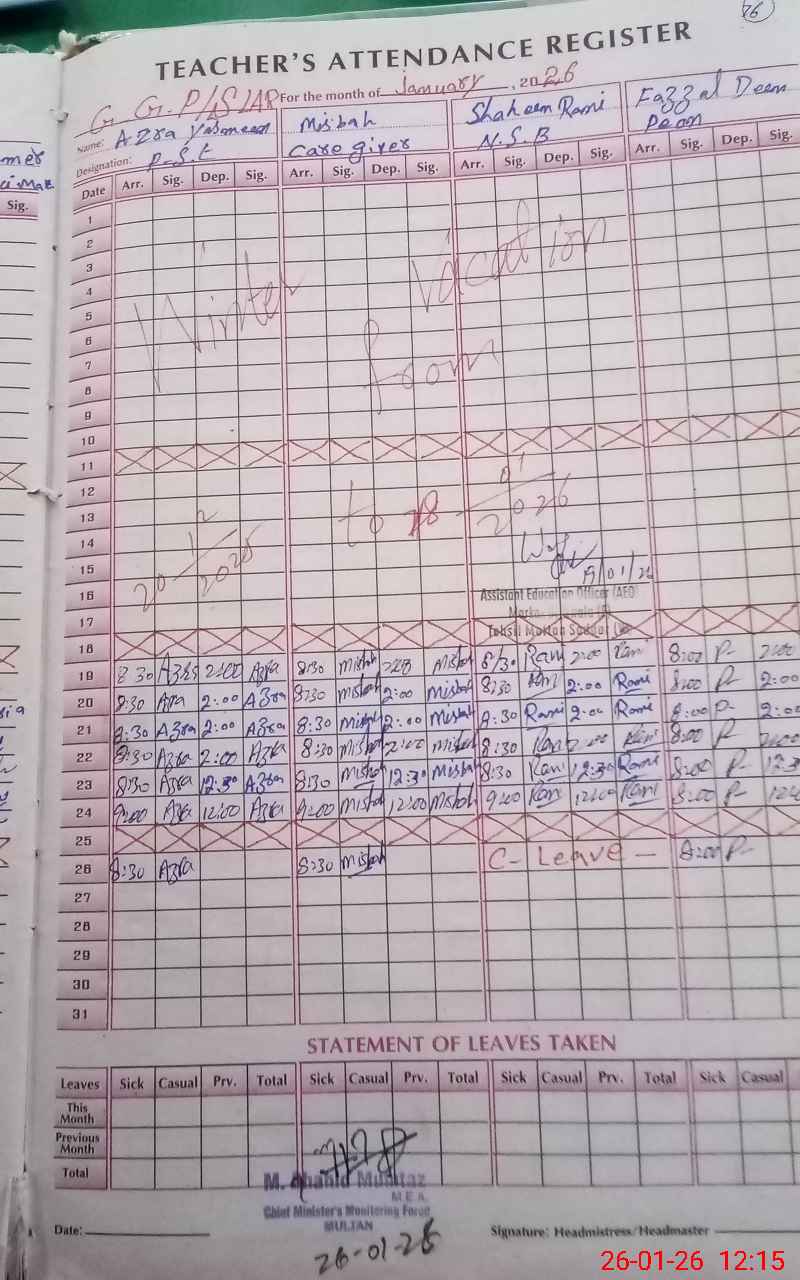 76
TEACHER'S ATTENDANCE REGISTER
G. G. P/S For the month of January, 2026
Name: Azra Yasmeen Misbah Shaheen Rami Fazzal Deen
Designation: P.S.T Care giver N.S.B Peon
Date Arr. Sig. Dep. Sig. Arr. Sig. Dep. Sig. Arr. Sig. Dep. Sig. Arr. Sig. Dep. Sig.
Sig.
1
2
3
4
5
6
7
8
9
10
11
12
13
14
15
16
17
18
Winter Vacation
from
20 12 2025 to 18 01 2026
19/01/26
Assistant Education Officer (AEO)
19 8:30 Azra 2:00 Azra 8:30 Misbah 2:00 Misbah 8:30 Rami 2:00 Rami 8:00 P- 2:00
20 8:30 Azra 2:00 Azra 8:30 Misbah 2:00 Misbah 8:30 Rami 2:00 Rami 8:00 P- 2:00
21 8:30 Azra 2:00 Azra 8:30 Misbah 2:00 Misbah 8:30 Rami 2:00 Rami 8:00 P- 2:00
22 8:30 Azra 2:00 Azra 8:30 Misbah 2:00 Misbah 8:30 Rami 2:00 Rami 8:00 P- 2:00
23 8:30 Azra 12:30 Azra 8:30 Misbah 12:30 Misbah 8:30 Rami 12:30 Rami 8:00 P- 12:3
24 9:00 Azra 12:00 Azra 9:00 Misbah 12:00 Misbah 9:00 Rami 12:00 Rami 8:00 P- 12:0
25
26 8:30 Azra 8:30 Misbah C- Leave - 8:00 P-
27
28
29
30
31
STATEMENT OF LEAVES TAKEN
Leaves Sick Casual Prv. Total Sick Casual Prv. Total Sick Casual Prv. Total Sick Casual
This Month
Previous Month
Total
M. Mumtaz
M.E.A.
Chief Minister's Monitoring Force
MULTAN
Date: Signature: Headmistress/Headmaster
26-01-26
26-01-26 12:15